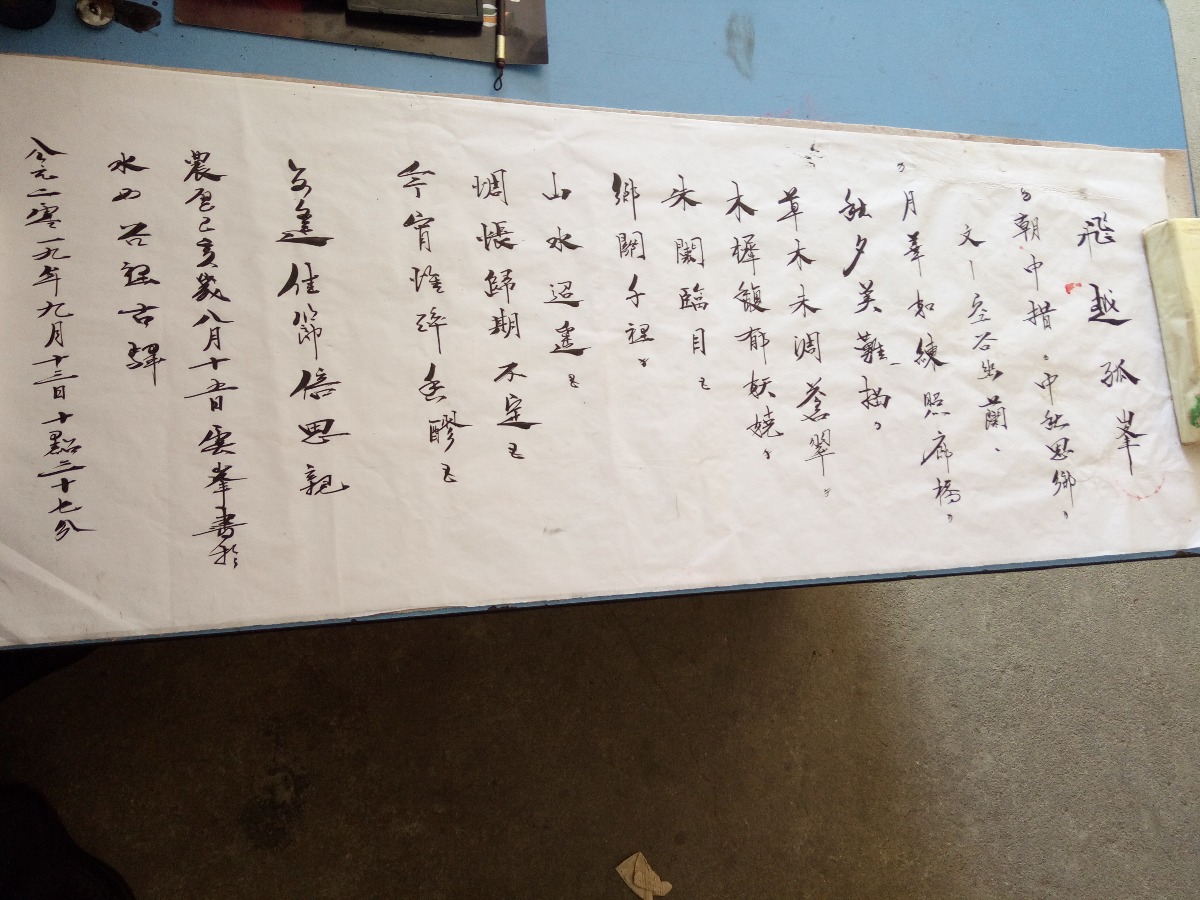 飛越孤峯
朝中措。中秋思鄉,
文一空谷幽蘭、
月華如練照廊橋,
秋夕美難描,
草木未凋蒼翠,
木樨馥郁妖嬈,
朱闕臨目
鄉關千裡
山水迢遙
惆悵歸期不定
今宵惟醉香醪
每逢佳節倍思親
農曆己亥歲八月十五日雲峯書於
水西谷裡古驛
公元二零一九年九月十三日十點三十七分